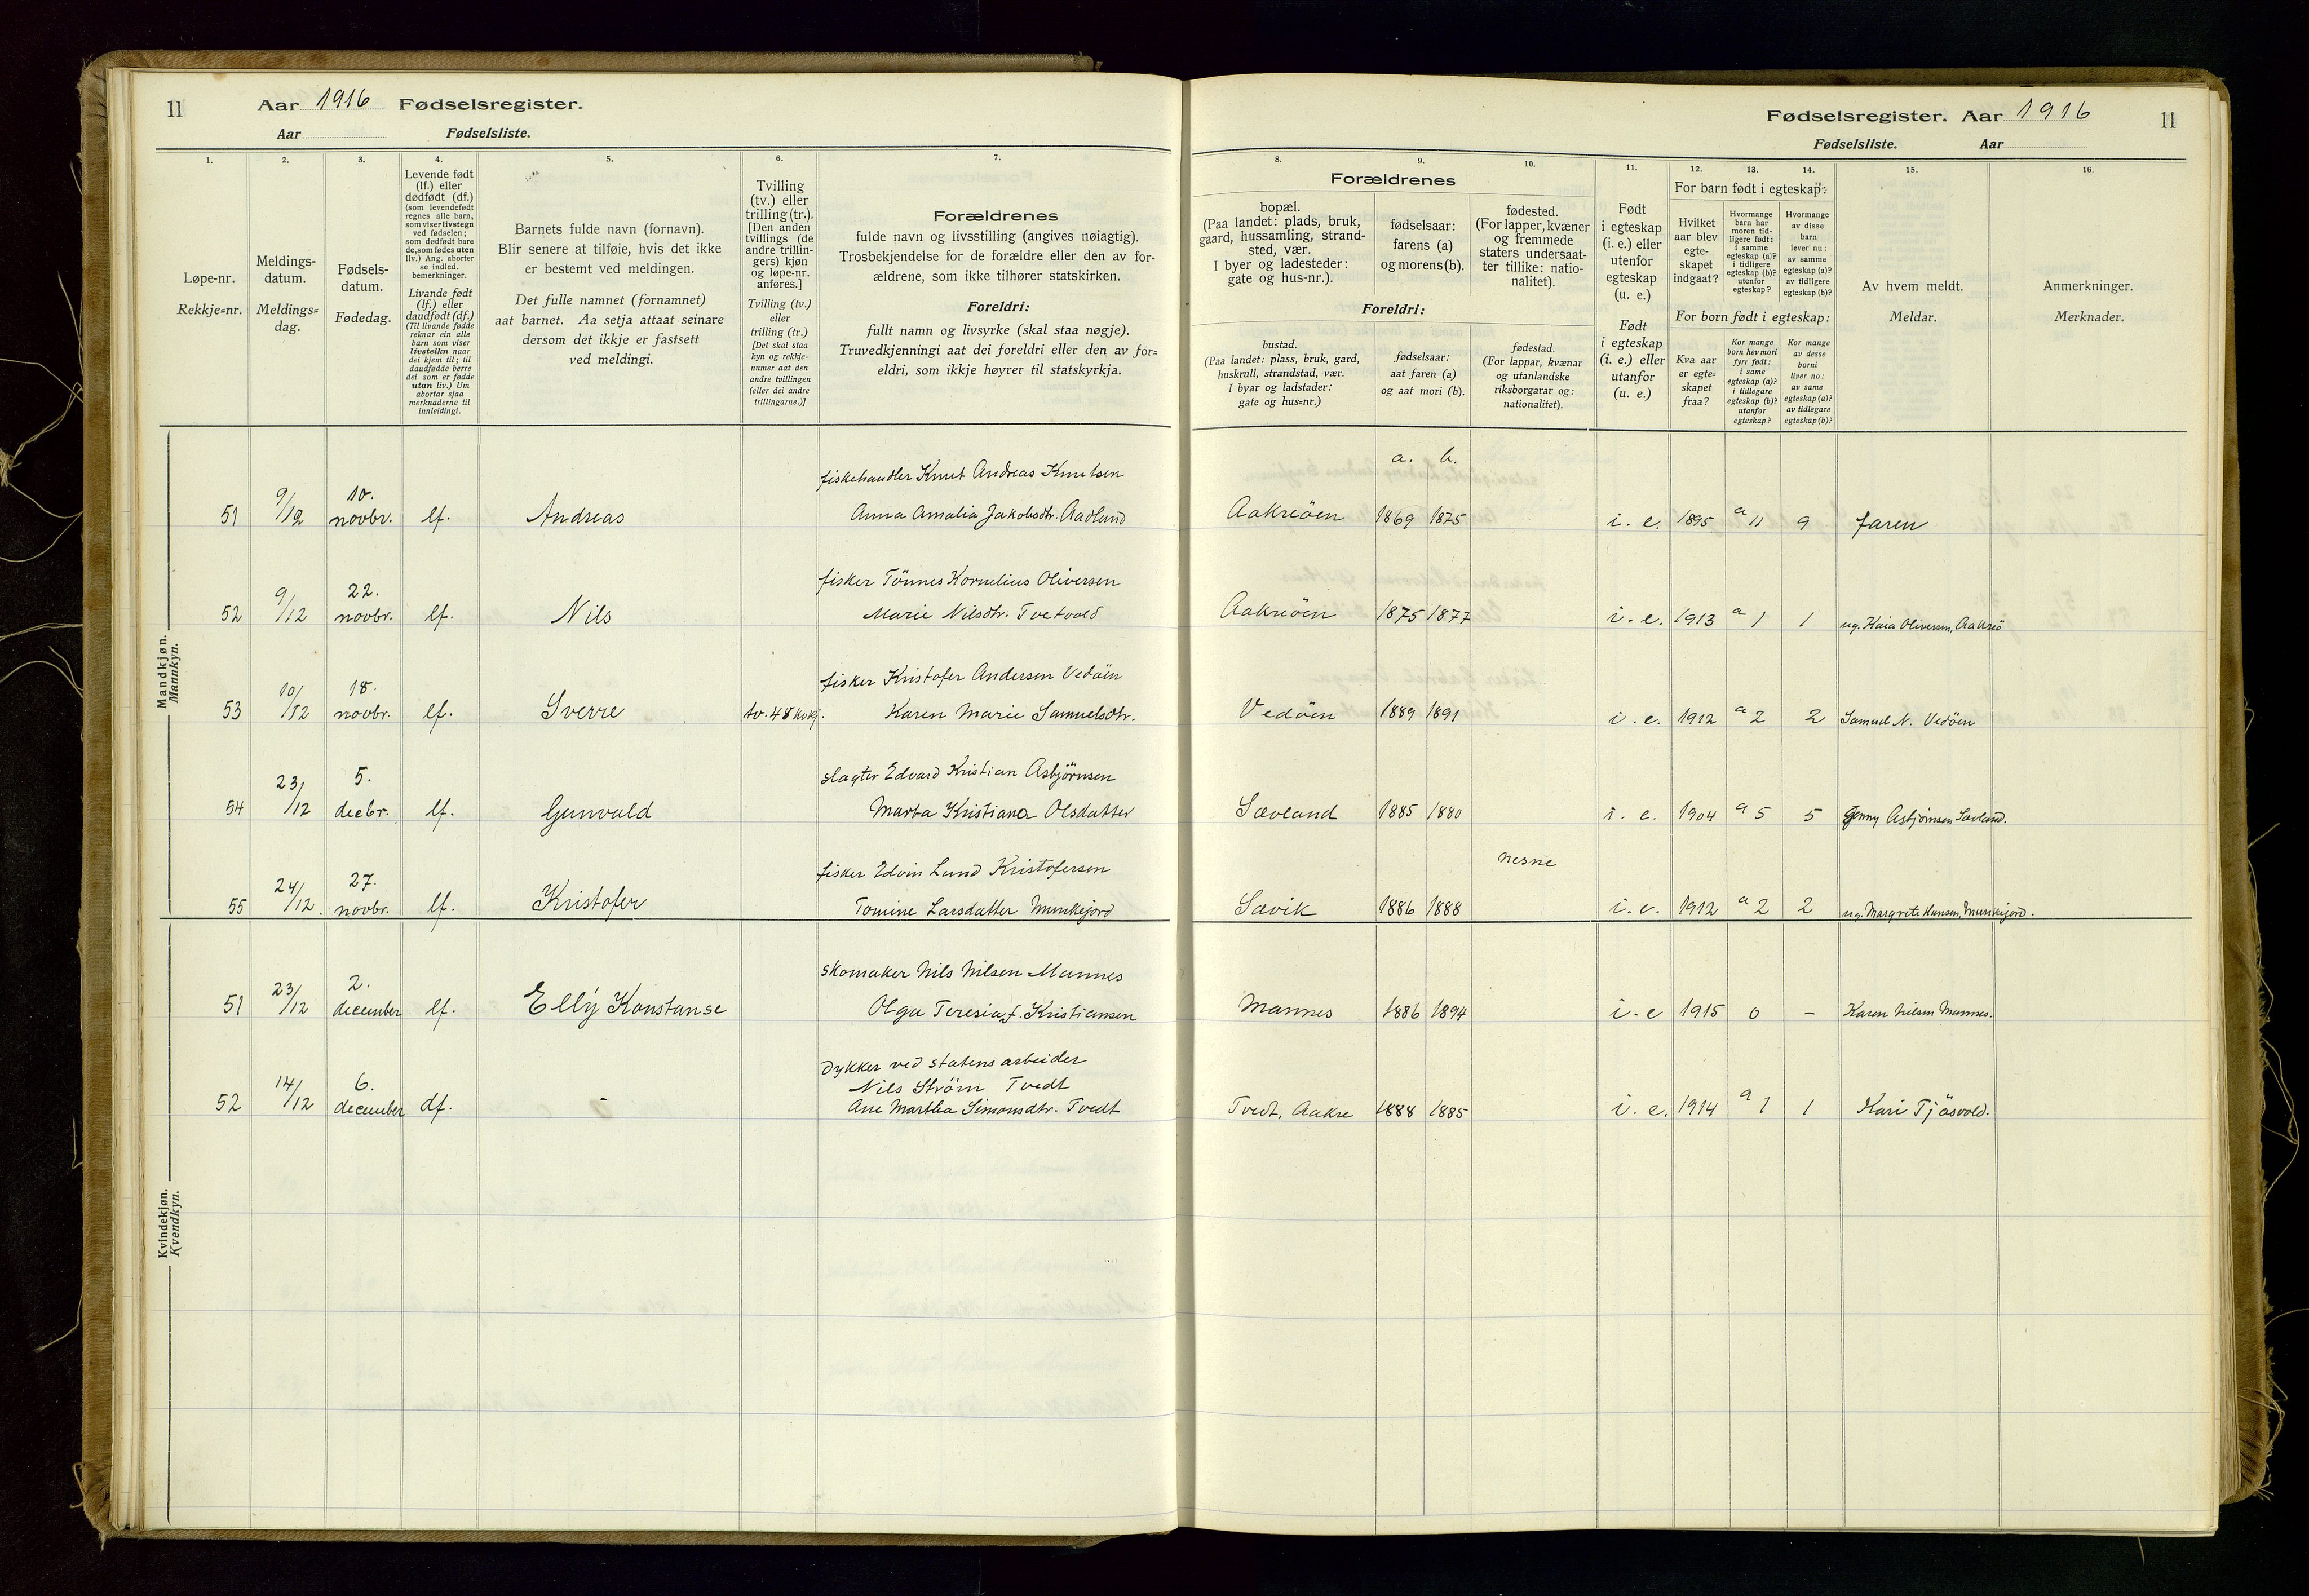 11 Aar 1916 Fødselsregister.
Aar Fødselsliste.
1. 2. 3. 4. 5. 6. 7.
Løpe-nr.
Rekkje=nr.
Meldings-
datum.
Meldings=
dag.
Fødsels-
datum.
Fødedag.
Levende født
(lf.) eller
dødfødt (df.)
(som levendefødt
regnes alle barn,
som viser livstegn
ved fødselen;
som dødfødt bare
de, som fødes uten
liv.) Ang. aborter
se indled.
bemerkninger.
Livande født
(lf.) eller
daudfødt (df.)
(Til livande fødde
reknar ein alle
barn som viser
livsteikn naar
dei kjem til; til
daudfødde berre
dei som er fødde
utan liv.) Um
abortar sjaa
merknaderne til
innleidingi.
Barnets fulde navn (fornavn).
Blir senere at tilføie, hvis det ikke
er bestemt ved meldingen.
Det fulle namnet (fornamnet)
aat barnet. Aa setja attaat seinare
dersom det ikkje er fastsett
ved meldingi.
Tvilling
(tv.) eller
trilling (tr.).
[Den anden
tvillings (de
andre trillin-
gers) kjøn
og løpe-nr.
anføres.]
Tvilling (tv.)
eller
trilling (tr.)
[Det skal staa
kyn og rekkje-
numer aat den
andre tvillingen
(eller dei andre
trillingarne.)]
Forældrenes
fulde navn og livsstilling (angives nøiagtig).
Trosbekjendelse for de forældre eller den av for-
ældrene, som ikke tilhører statskirken.
Foreldri:
fullt namn og livsyrke (skal staa nøgje).
Truvedkjenningi aat dei foreldri eller den av for=
eldri, som ikkje høyrer til statskyrkja.
Mandkjøn.
Mannkyn.
fiskehandler Knut Andreas Knutsen
51 9/12 10. novbr. lf. Andreas Anna Amalia Jakobsdtr. Aadland
fisker Tönnes Kornelius Oliversen
52 9/12 22. novbr. lf. Nils Marie Nilsdtr. Tvetvold
fisker Kristofer Andersen Vedöen
53 10/12 18. novbr. lf. Sverre tv. 48 kvkj. Karen Marie Samuelsdtr.
slagter Edvard Kristian Asbjörnsen
54 23/12 5. decbr. lf. Gunvald Marta Kristiana Olsdatter
fisker Edvin Lund Kristofersen
55 24/12. 27. novbr. lf. Kristofer Tomine Larsdatter Munkejord
Kvindekjøn.
Kvendkyn.
skomaker Nils Nilsen Mannes
51 23/12 2. december lf. Elly Konstanse Olga Teresia f. Kristiansen
dykker ved statens arbeider
Nils Ström Tvedt
52 14/12 6. december df. - Ane Martha Simonsdtr. Tvedt
Fødselsregister. Aar 1916 11
Fødselsliste. Aar
8. 9. 10. 11. 12. 13. 14. 15. 16.
Forældrenes
bopæl.
(Paa landet: plads, bruk,
gaard, hussamling, strand-
sted, vær.
I byer og ladesteder:
gate og hus-nr.).
fødselsaar:
farens (a)
og morens (b).
fødested.
(For lapper, kvæner
og fremmede
staters undersaat-
ter tillike: natio-
nalitet).
Foreldri:
bustad.
(Paa landet: plass, bruk, gard,
huskrull, strandstad, vær.
I byar og ladstader:
gate og hus=nr.)
fødselsaar:
aat faren (a)
og aat mori (b).
fødestad.
(For lappar, kvænar
og utanlandske
riksborgarar og:
nationalitet).
Født
i egteskap
(i. e.) eller
utenfor
egteskap
(u. e.)
Født
i egteskap
(i. e.) eller
utanfor
(u. e.)
For barn født i egteskap:
Hvilket
aar blev
egte-
skapet
indgaat?
Hvormange
barn har
moren tid-
ligere født:
i samme
egteskap (a)?
i tidligere
egteskap (b)?
utenfor
egteskap?
Hvormange
av disse
barn
lever nu:
av samme
egteskap (a)?
av tidligere
egteskap (b)?
For born født i egteskap:
Kva aar
er egte=
skapet
fraa?
Kor mange
born hev mori
fyrr født:
i same
egteskap (a)?
i tidlegare
egteskap (b)?
utanfor
egteskap?
Kor mange
av desse
borni
liver no:
av same
egteskap (a)?
av tidlegare
egteskap (b)?
Av hvem meldt.
Meldar.
Anmerkninger.
Merknader.
a. b.
Aakreöen 1869 1875 i. e. 1895 a 11 9 faren
Aakreöen 1875 1877 i. e. 1913 a 1 1 ug. Kaia Oliversen, Aakreö
Vedöen 1889 1891 i. e. 1912 a 2 2 Samuel N. Vedöen
Sævland 1885 1880 i. e. 1904 a 5 5 Jenny Asbjørnsen Sævland.
nesne
Sævik 1886 1888 i. e. 1912 a 2 2 ug. Margrete Hansen, Munkejord.
Mannes 1886 1894 i. e 1915 0 - Karen Nilsen Mannes.
Tvedt, Aakre 1888 1885 i. e. 1914 a 1 1 Kari Tjösvold.